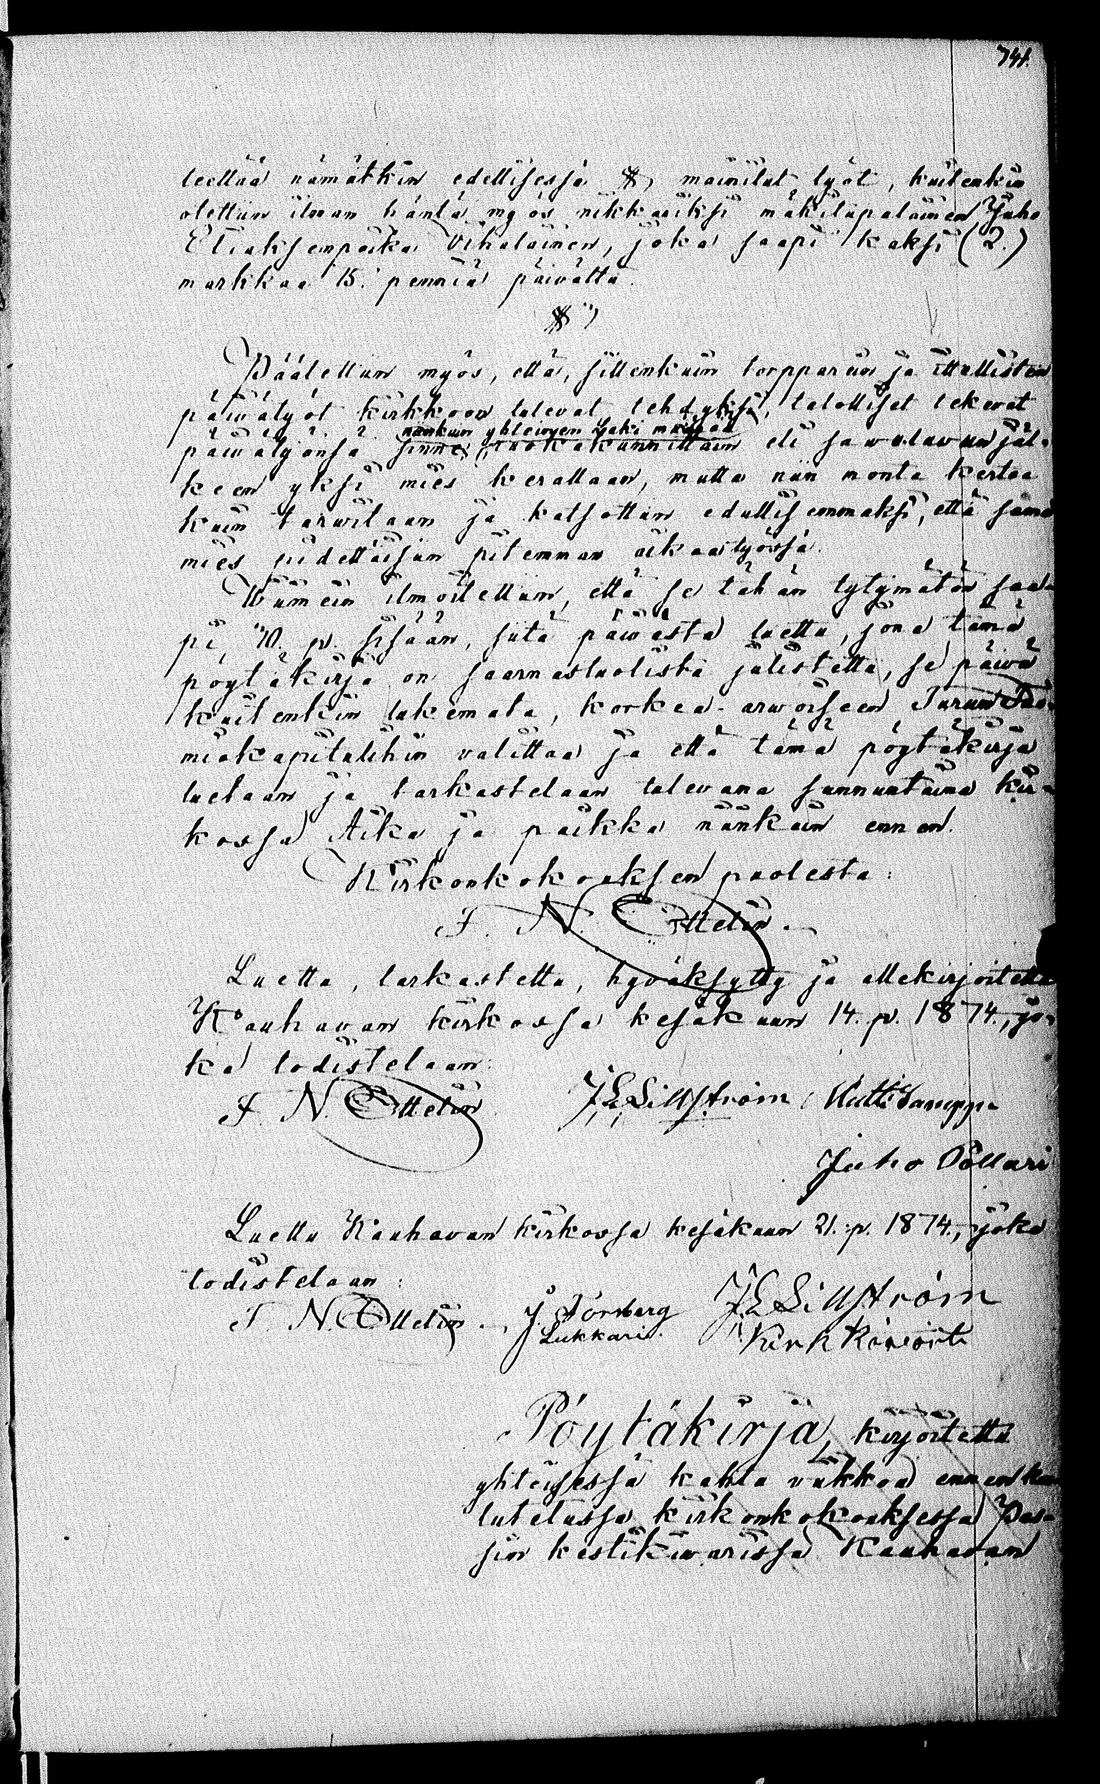 741.
teettää nämätkin edellisessä § mainitut työt, kuitenkin
otettiin ilman häntä myös nikkariksi mäkitupalainen Juho
Eliaksenpoika Vihalainen, joka saapi kaksi (2.)
markkaa 15. penniä päivältä.
§
Päätettiin myös, että, sittenkuin torpparein ja itsellisten
päiwätyöt kirkkoon tulevat tehdyksi, talolliset tekevat
niinkuin yhteisyen jaki määrää
päiwätyönsä sinne ruokakunnittain eli sawuluwun jäl-
keen yksi mies kerallaan, mutta niin monta kertaa
kuin tarwitaan ja katsottiin edullisemmaksi, että sama
mies pidettäisiin pitemmän aikaa työssä.
Wiimein ilmoitettiin, että se tähän tytymätön saa-
pi, 30. p. sisään, siitä päiwästä luettu, jona tämä
pöytäkirja on saarnastuolista julistettu, se päivä
kuitenkin lukemata, korkea-arwoiseen Turun Tuo-
miokapituliihin valittaa ja että tämä pöytäkirja
luetaan ja tarkastetaan tulevana sunnuntaina kir-
kossa. Aika ja paikka niinkuin ennen.
Kirkonkokouksen puolesta:
F. N. Ottelin.
Luettu, tarkastettu, hyväksytty ja allekirjoitettu
Kauhavan kirkossa kesäkuun 14. p. 1874, jo-
ka todistetaan:
F. N. Ottelin J E Lillström Matti
Juho Pollari
Luettu Kauhavan kirkossa kesäkuun 21. p. 1874, joka
todistetaan:
F. N. Ottelin. J. Forsberg J E Lillström
Lukkari. Kirkkoväärti
Pöytäkirja, kirjoitettu
yhteisessä kahta viikkoa ennen kuu-
lutetussa kirkonkokouksessa Pas-
sin kestikiwarissa Kauhavan